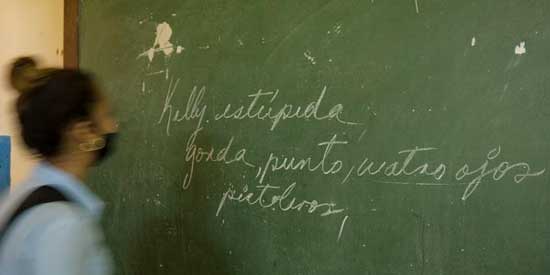 Kelly estúpida
gorda, punto, cuatro ojos
pistoleros,